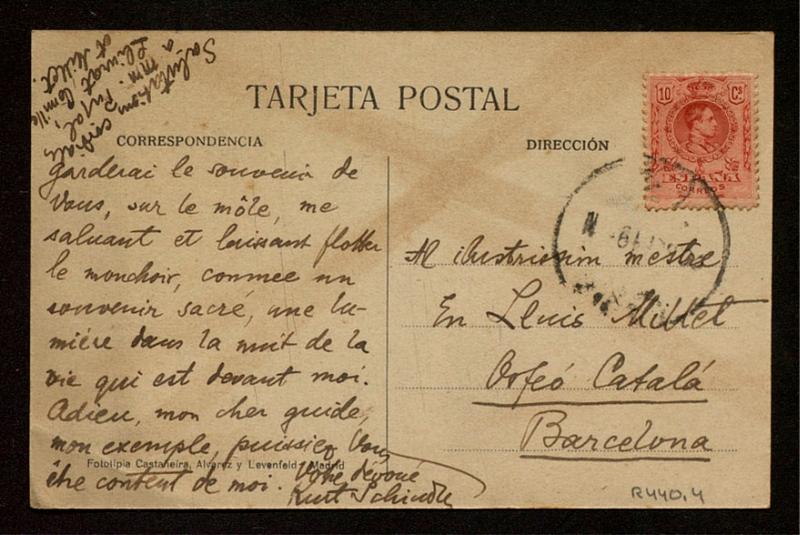 Salutations cordiales
a mm. Pujol, Camille
Llimona
et Millet.
TARJETA POSTAL
CORRESPONDENCIA
garderai le souvenir de
Vous, sur le môle, me
saluant et laissant flotter
le monchoir, conmee un
souvenir sacré, une lu-
mière dans la nuit de la
vie qui est devant moi.
Adieu, mon cher guide,
mon exemple, puissiez Vous
être content de moi. Votre dévoué
Kurt Schindler
Fototipia Castañeira, Alvarez y Levenfeld - Madrid
DIRECCIÓN
10 Cs
ESPAÑA
CORREOS
Al ilustrissim mestre
En Lluis Millet
Orfeó Catalá
Barcelona
R440,4